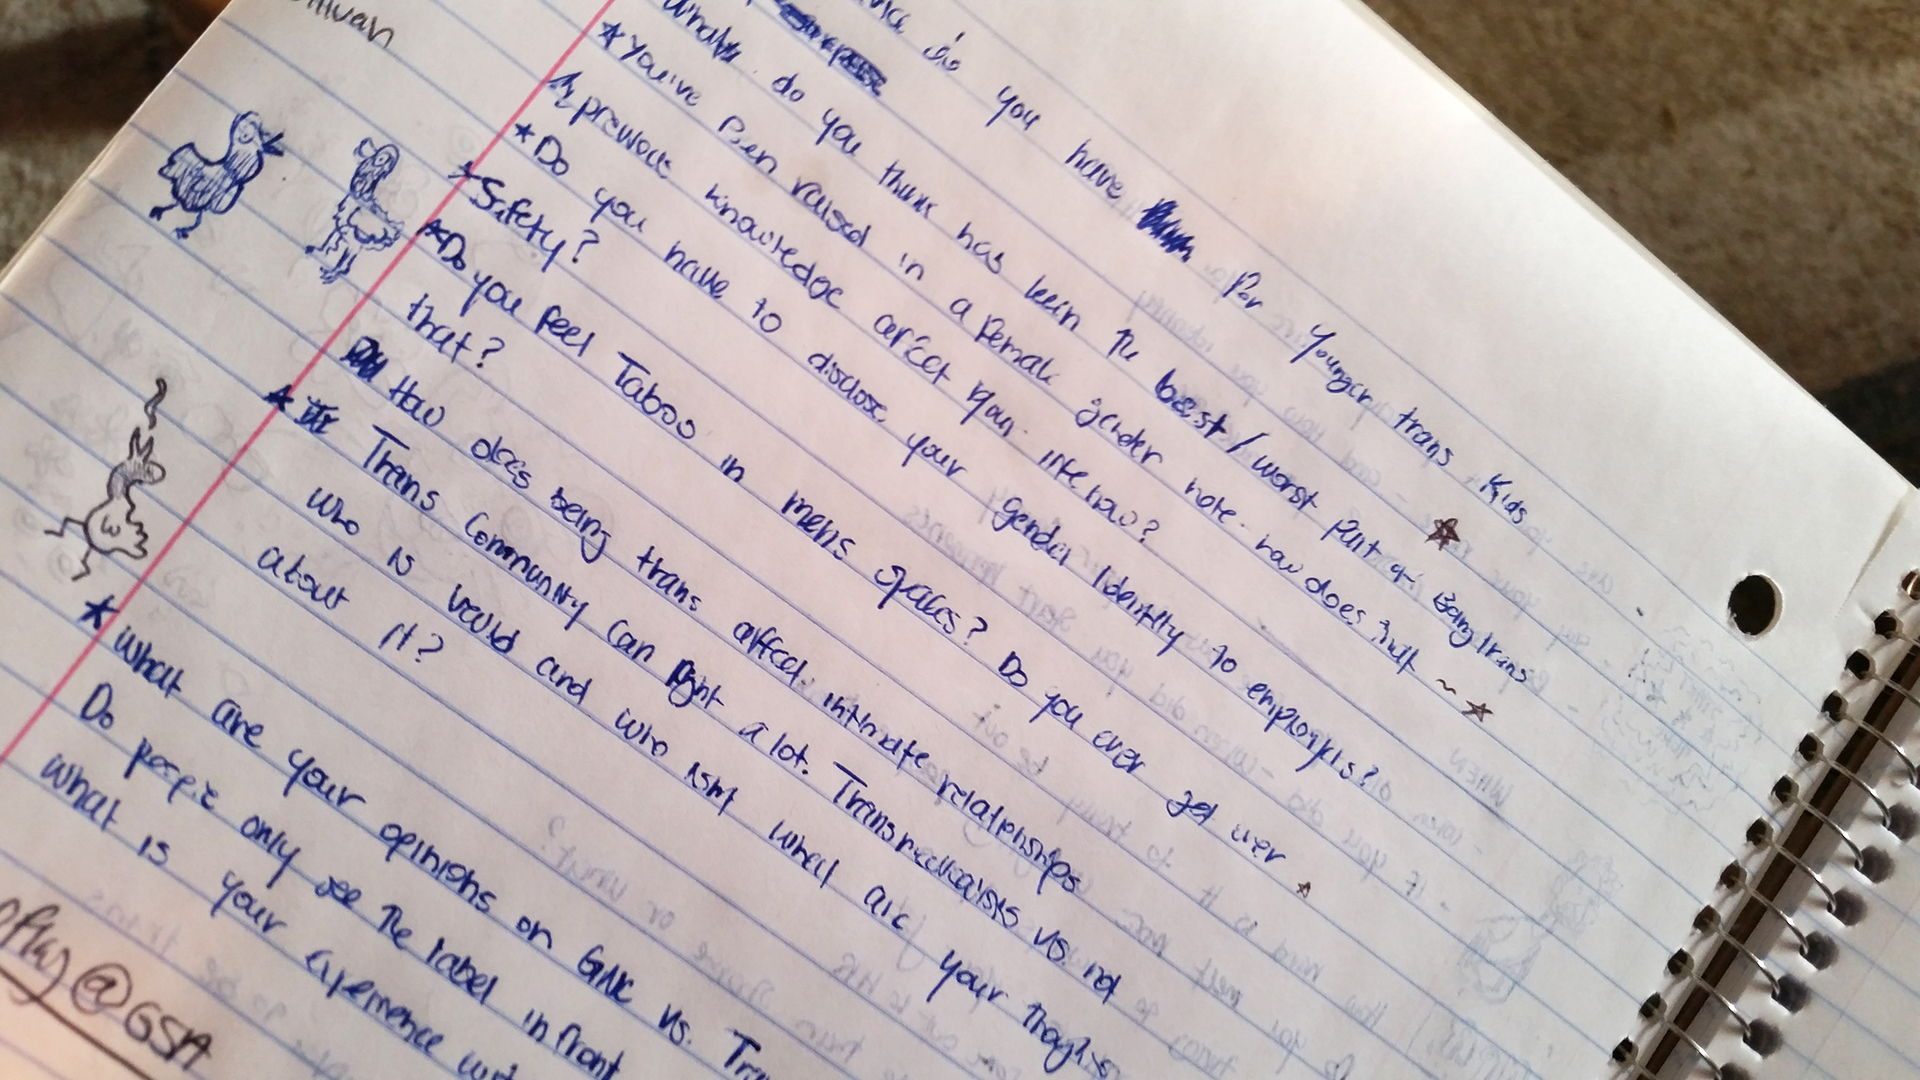 do you have for Younger trans Kids
What do you think has been the best/worst part of Being trans
You've Been raised in a female gender note. how does that ~
previous knowledge affect your life now?
Do you have to disclose your gender Identity to employers?
Safety?
Do you feel Taboo in mens spaces? Do you ever get over
that?
How does being trans affect intimate relationships
Trans Community can fight a lot. Transmedicalists vs. not
who is valid and who isnt what are your thoughts
about it?
What are your opinions on GNC vs.
Do people only see the label in front
What is your experience
@GSA